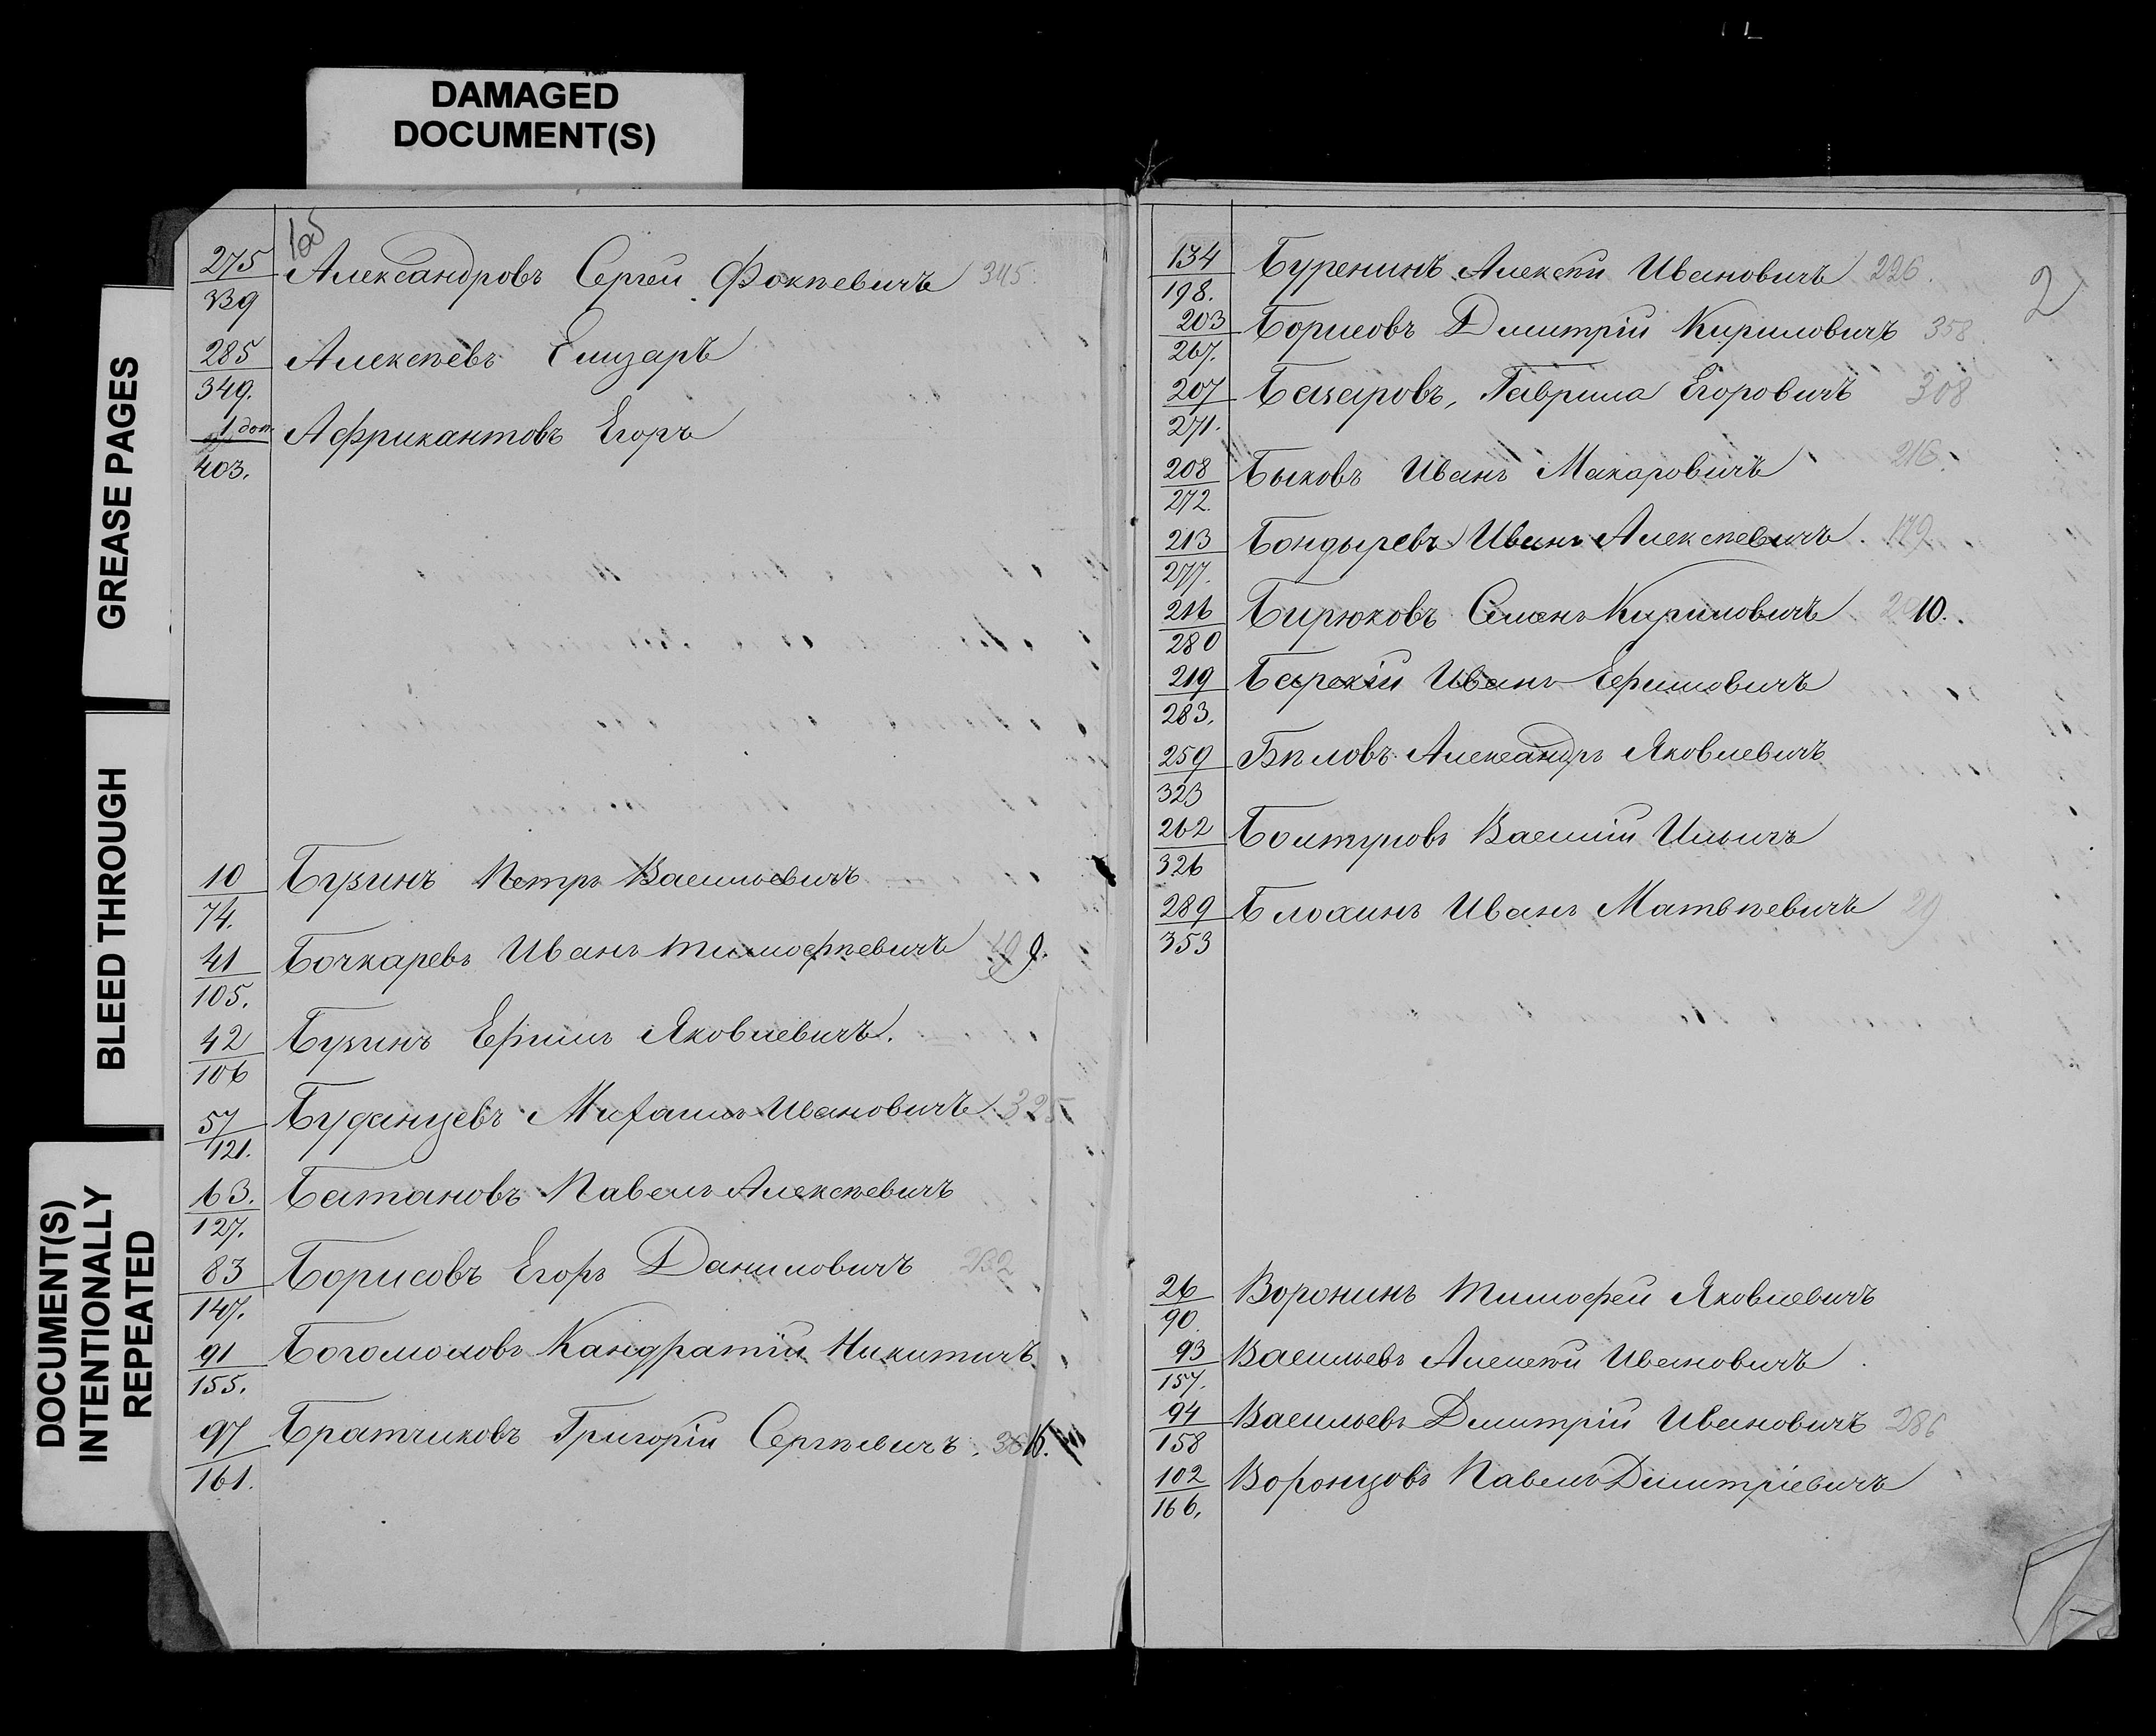 DAMAGED
DOCUMENT(S)
GREASE PAGES
BLEED THROUGH
DOCUMENT(S)
INTENTIONALLY
REPEATED
1об
275/339 Александровъ Сергѣй Фокѣевичъ 345.
285/349. Алексѣевъ Елизаръ
1 доп./403. Африкантовъ Егоръ
10/74. Бузинъ Петръ Васильевичъ
41/105. Бочкаревъ Иванъ Тимофѣевичъ 9.
42/106 Бузинъ Ефимъ Яковлевичъ.
57/121. Буданцевъ Михаилъ Ивановичъ 325
63./127. Батановъ Павелъ Алексѣевичъ
83/147. Борисовъ Егоръ Даниловичъ 232
91/155. Богомоловъ Кандратій Никитичъ
97/161. Братчиковъ Григорій Сергѣевичъ. 16.
2
134/198. Буренинъ Алексѣй Ивановичъ 226.
203/267. Борисовъ Дмитрій Кириловичъ 358
207/271. Базаровъ, Гаврила Егоровичъ 308
208/272. Быковъ Иванъ Макаровичъ 216.
213/277. Бондыревъ Иванъ Алексѣевичъ. 179
216/280 Бирюковъ Семенъ Кириловичъ 10.
219/283. Барскій Иванъ Ефимовичъ
259/323 Бѣловъ Александръ Яковлевичъ
262/326 Болтуновъ Василій Ильичъ
289/353 Блохинъ Иванъ Матвѣевичъ 29
26/90. Воронинъ Тимофей Яковлевичъ
93/157. Васильевъ Алексѣй Ивановичъ
94/158 Васильевъ Дмитрій Ивановичъ 286
102/166. Воронцовъ Павелъ Димитріевичъ